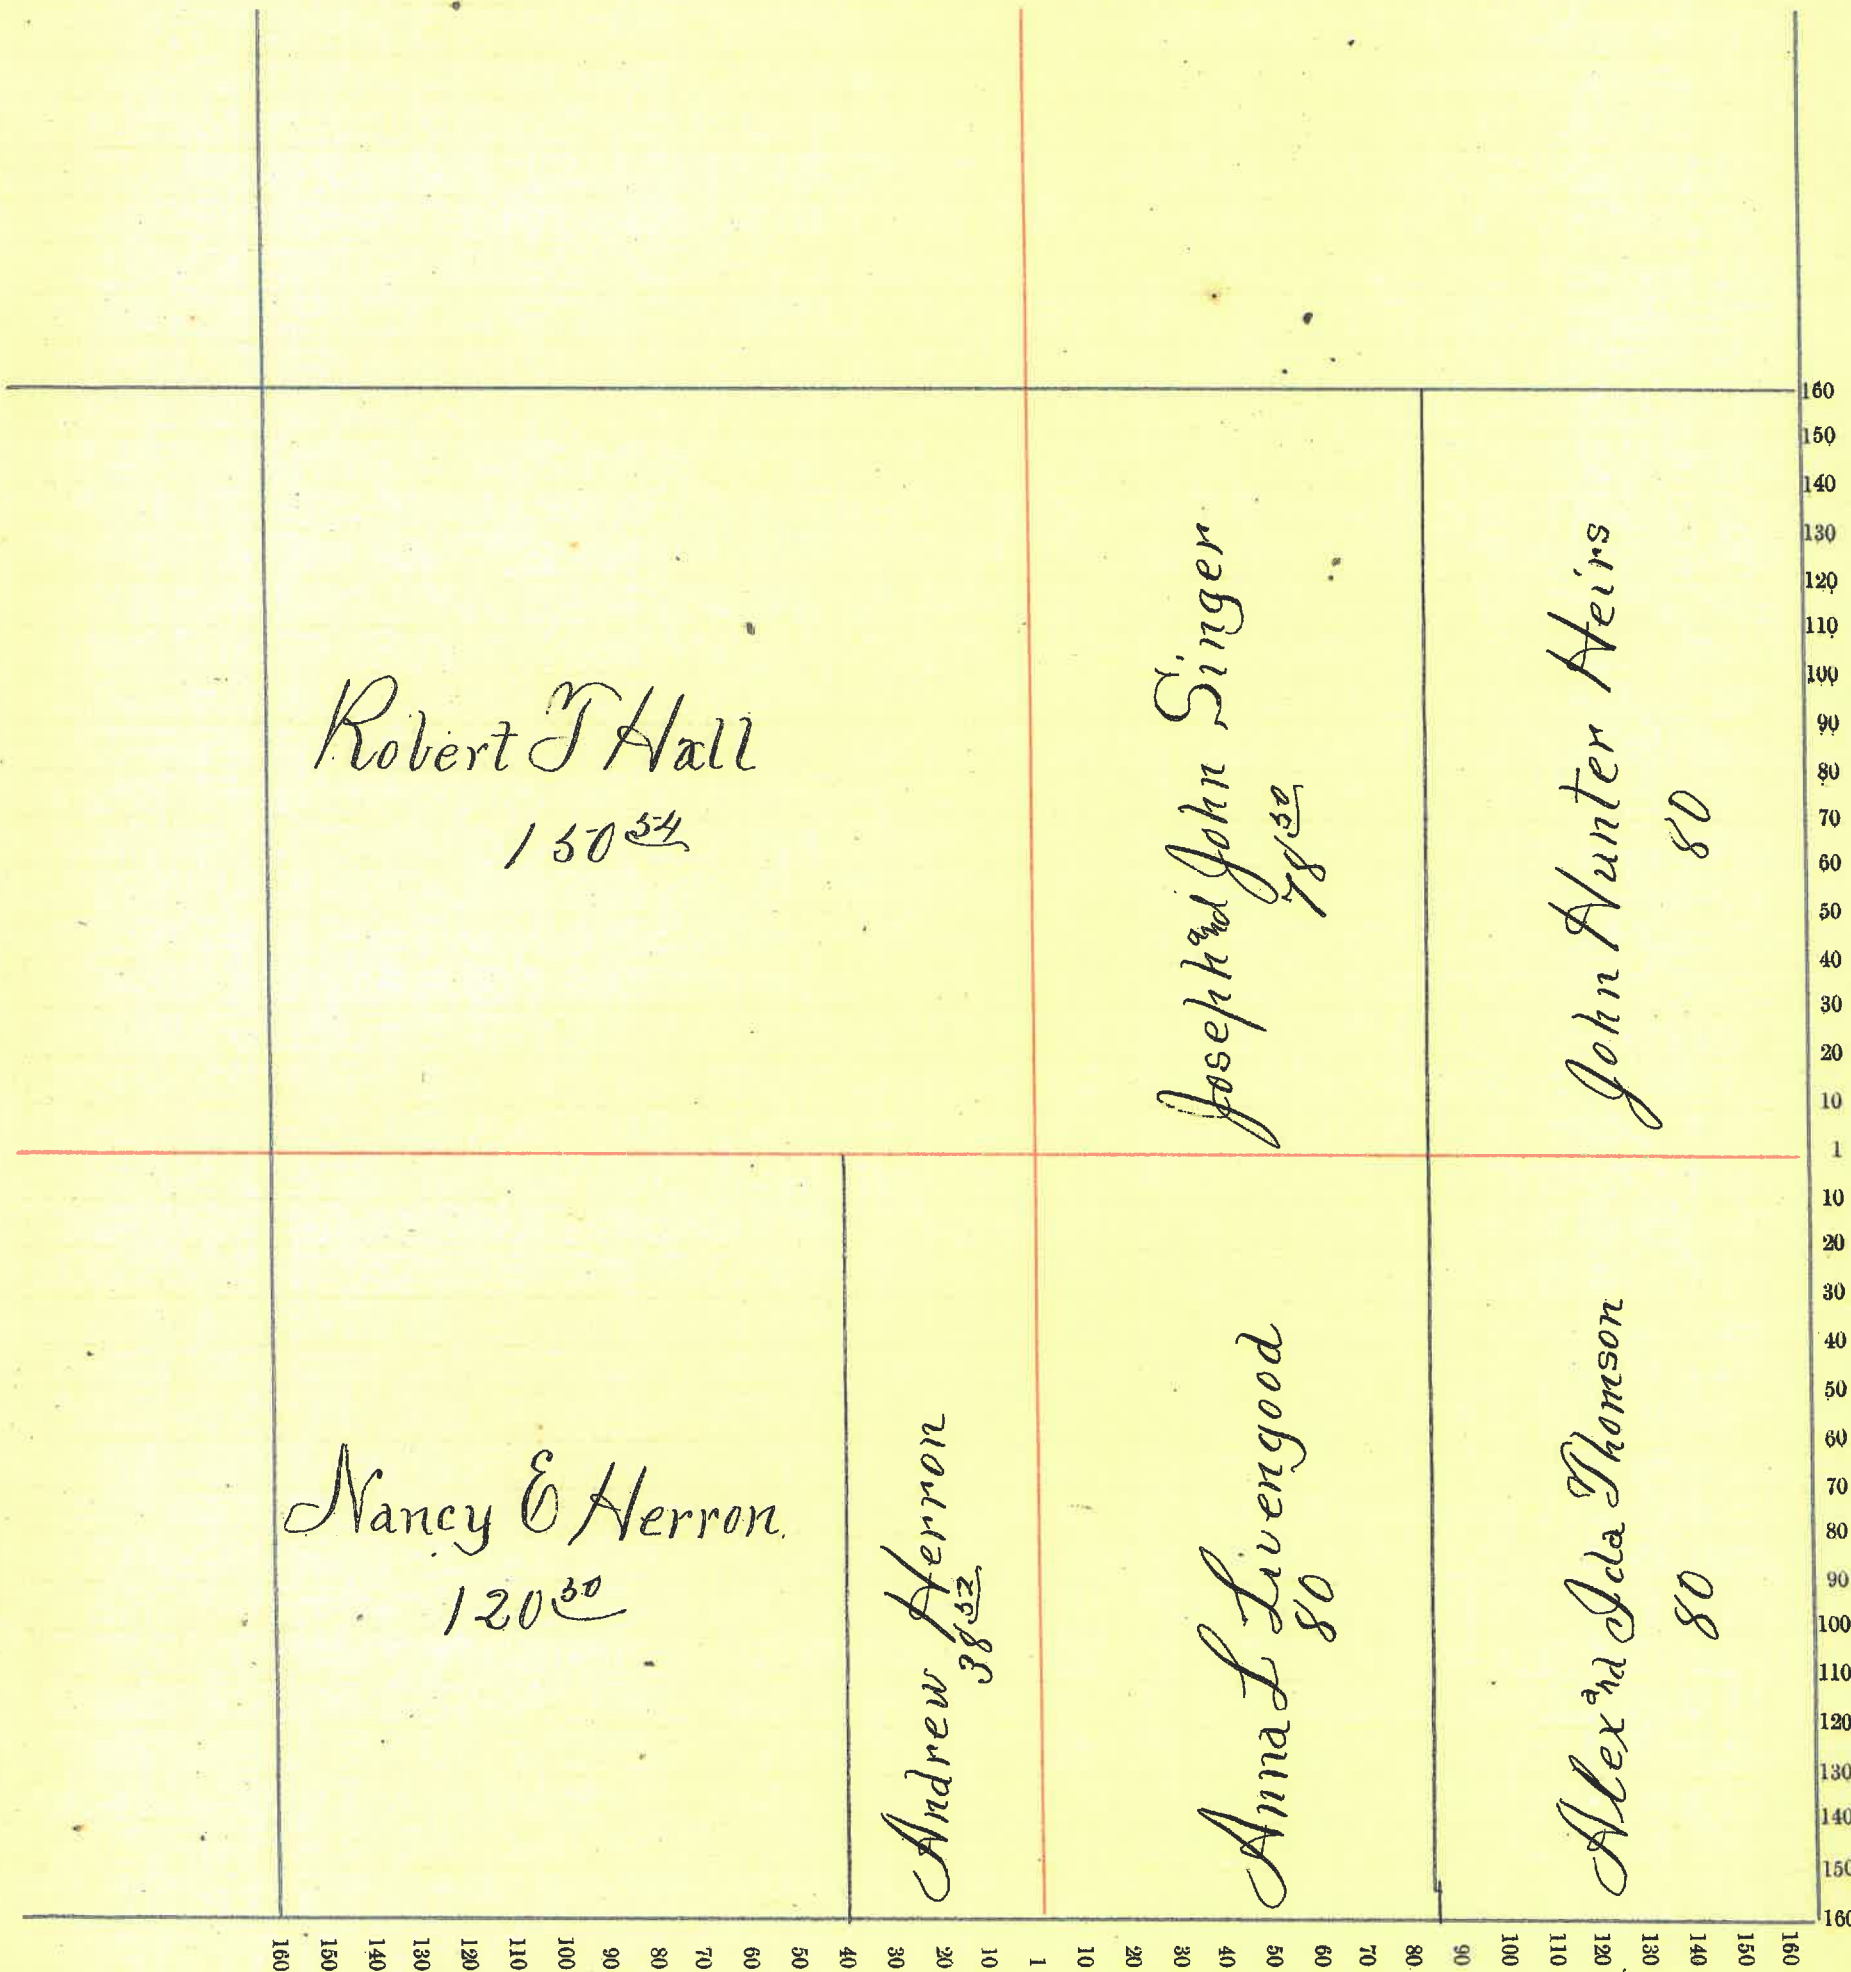 Robert T Hall
150 54
Joseph and John Singer
78 50
John Hunter Heirs
80
Nancy E Herron
120 50
Andrew Herron
38 52
Anna L Livengood
80
Alex and Ida Thomson
80
160
150
140
130
120
110
100
90
80
70
60
50
40
30
20
10
1
10
20
30
40
50
60
70
80
90
100
110
120
130
140
150
160
160 150 140 130 120 110 100 90 80 70 60 50 40 30 20 10 1 10 20 30 40 50 60 70 80 90 100 110 120 130 140 150 160